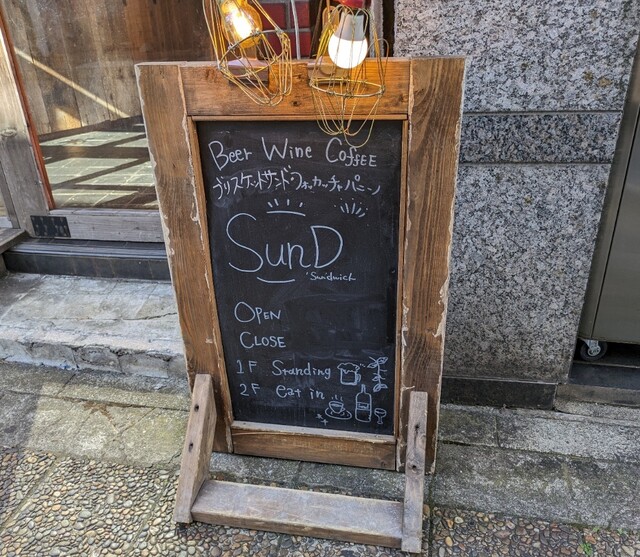 Beer Wine Coffee
ブリスケットサンド・フォカッチャパニーノ
SunD
'Sandwich
OPEN
CLOSE
1F Standing
2F eat in